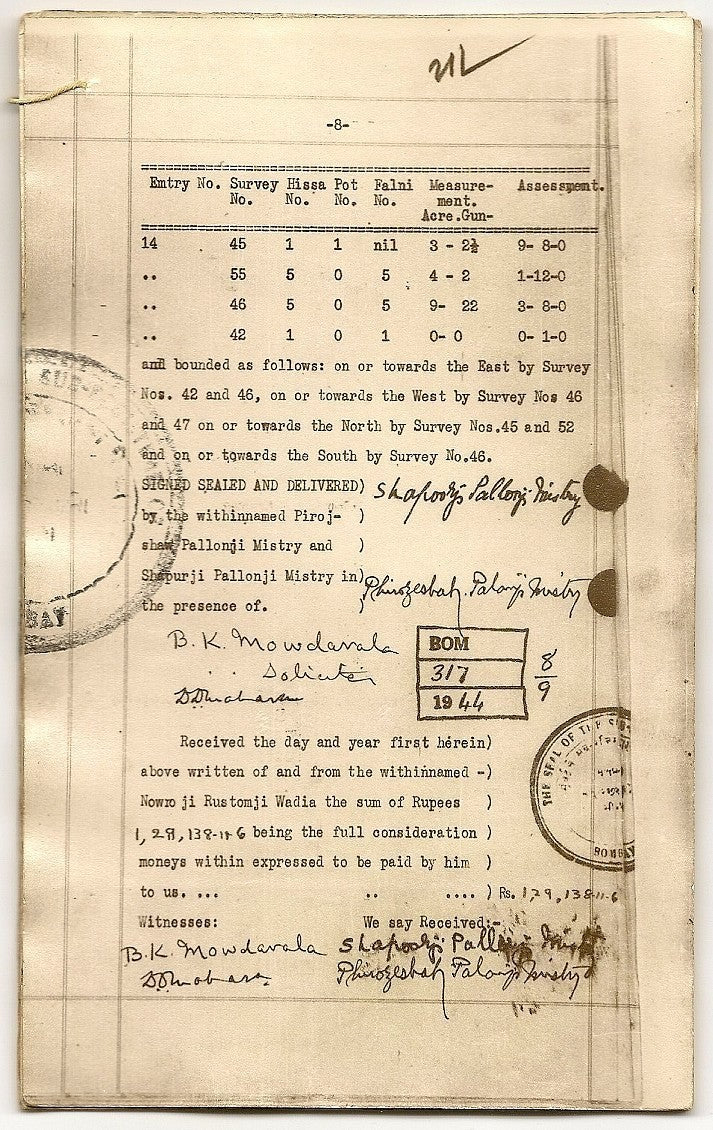 -8-
Emtry No. Survey Hissa Pot Falni Measure- Assessment.
No. No. No. No. ment.
Acre.Gun-
14 45 1 1 nil 3 - 2½ 9- 8-0
.. 55 5 0 5 4 - 2 1-12-0
.. 46 5 0 5 9- 22 3- 8-0
.. 42 1 0 1 0- 0 0- 1-0
and bounded as follows: on or towards the East by Survey
Nos. 42 and 46, on or towards the West by Survey Nos 46
and 47 on or towards the North by Survey Nos.45 and 52
and on or towards the South by Survey No.46.
SIGNED SEALED AND DELIVERED) Shapoorji Pallonji Mistry
by the withinnamed Piroj- )
shaw Pallonji Mistry and )
Shapurji Pallonji Mistry in) Phirozeshah Palonji Mistry
the presence of. )
B. K. Mowdavala
Solicitor
BOM
317
1944
8/9
THE SEAL OF THE SUB
BOMBAY
Received the day and year first herein)
above written of and from the withinnamed -)
Nowro ji Rustomji Wadia the sum of Rupees )
1,29,138-11-6 being the full consideration )
moneys within expressed to be paid by him )
to us. ... .. .... ) Rs. 1,29,138-11-6
Witnesses: We say Received:-
B. K. Mowdavala Shapoorji Pallonji Mistry
Phirozeshah Palonji Mistry